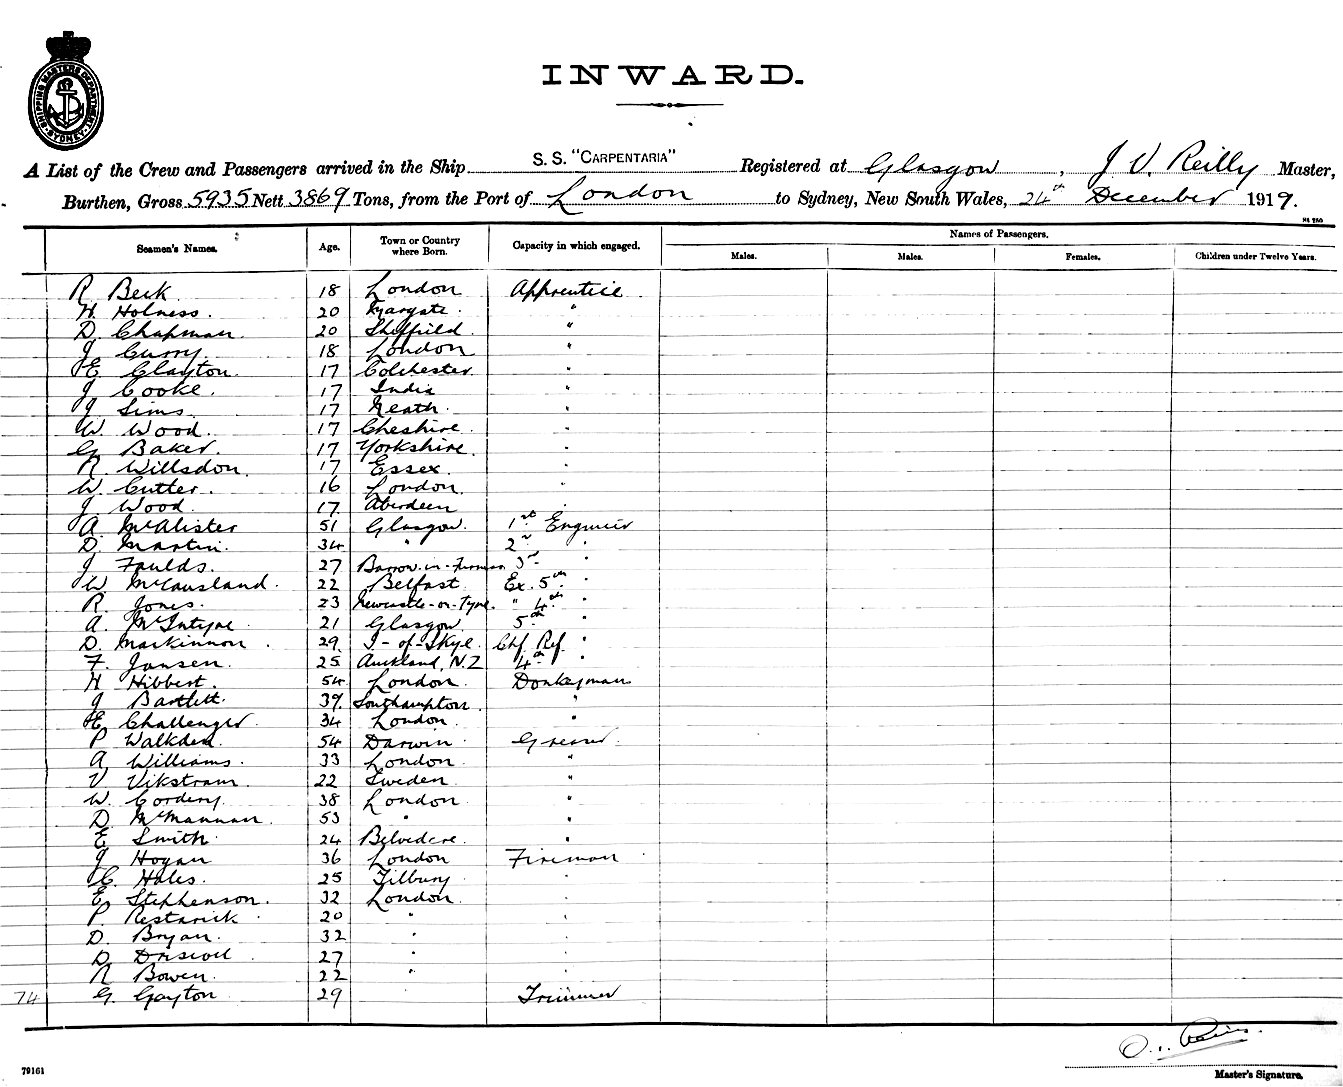 SHIPPING MASTERS DEPARTMENT SYDNEY
INWARD.
A List of the Crew and Passengers arrived in the Ship S. S. "CARPENTARIA" Registered at Glasgow, J V. Reilly Master,
Burthen, Gross 5935 Nett 3869 Tons, from the Port of London to Sydney, New South Wales, 24th December 1919.
Seamen's Names. Age. Town or Country where Born. Capacity in which engaged. Names of Passengers.
Males. Males. Females. Children under Twelve Years.
R Beck 18 London Apprentice
H. Holness. 20 Margate. "
D. Chapman. 20 Sheffield. "
J Curry. 18 London "
E Clayton. 17 Colchester. "
J Cooke. 17 India "
J Sims 17 Neath. "
W. Wood. 17 Cheshire. "
G Baker. 17 Yorkshire. "
R Willsdon. 17 Essex. "
W. Cutter. 16 London. "
J Wood. 17. Aberdeen
A. McAlister 51 Glasgow. 1st Engineer
D. Martin. 34 " 2nd "
J Faulds. 27 Barrow-in-Furness 3rd "
W McCausland. 22 Belfast. Ex. 5th "
R. Jones. 23 Newcastle-on-Tyne. " 4th "
A. McIntyre 21 Glasgow. 5th "
D. Mackinnon. 29. I-of-Skye. Chf. Ref. "
F. Jansen. 25 Auckland, N.Z 4th "
H Hibbert. 54 London. Donkeyman
J Bartlett. 39. Southampton. "
E Challenger 34 London. "
P Walkden. 54 Darwin Greaser
A Williams. 33 London. "
V Vikstram. 22 Sweden. "
W. Cordery. 38 London "
D. McMannan. 53 " "
E Smith. 24 Belvedere. "
J Hogan 36 London Fireman
C. Hales. 25 Tilbury "
E. Stephenson. 32 London. "
P. Restarick. 20 " "
D. Bryan. 32 " "
D Driscoll 27 " "
R Bowen. 22 " "
74 G. Gayton 29 " Trimmer
79161 Master's Signature.